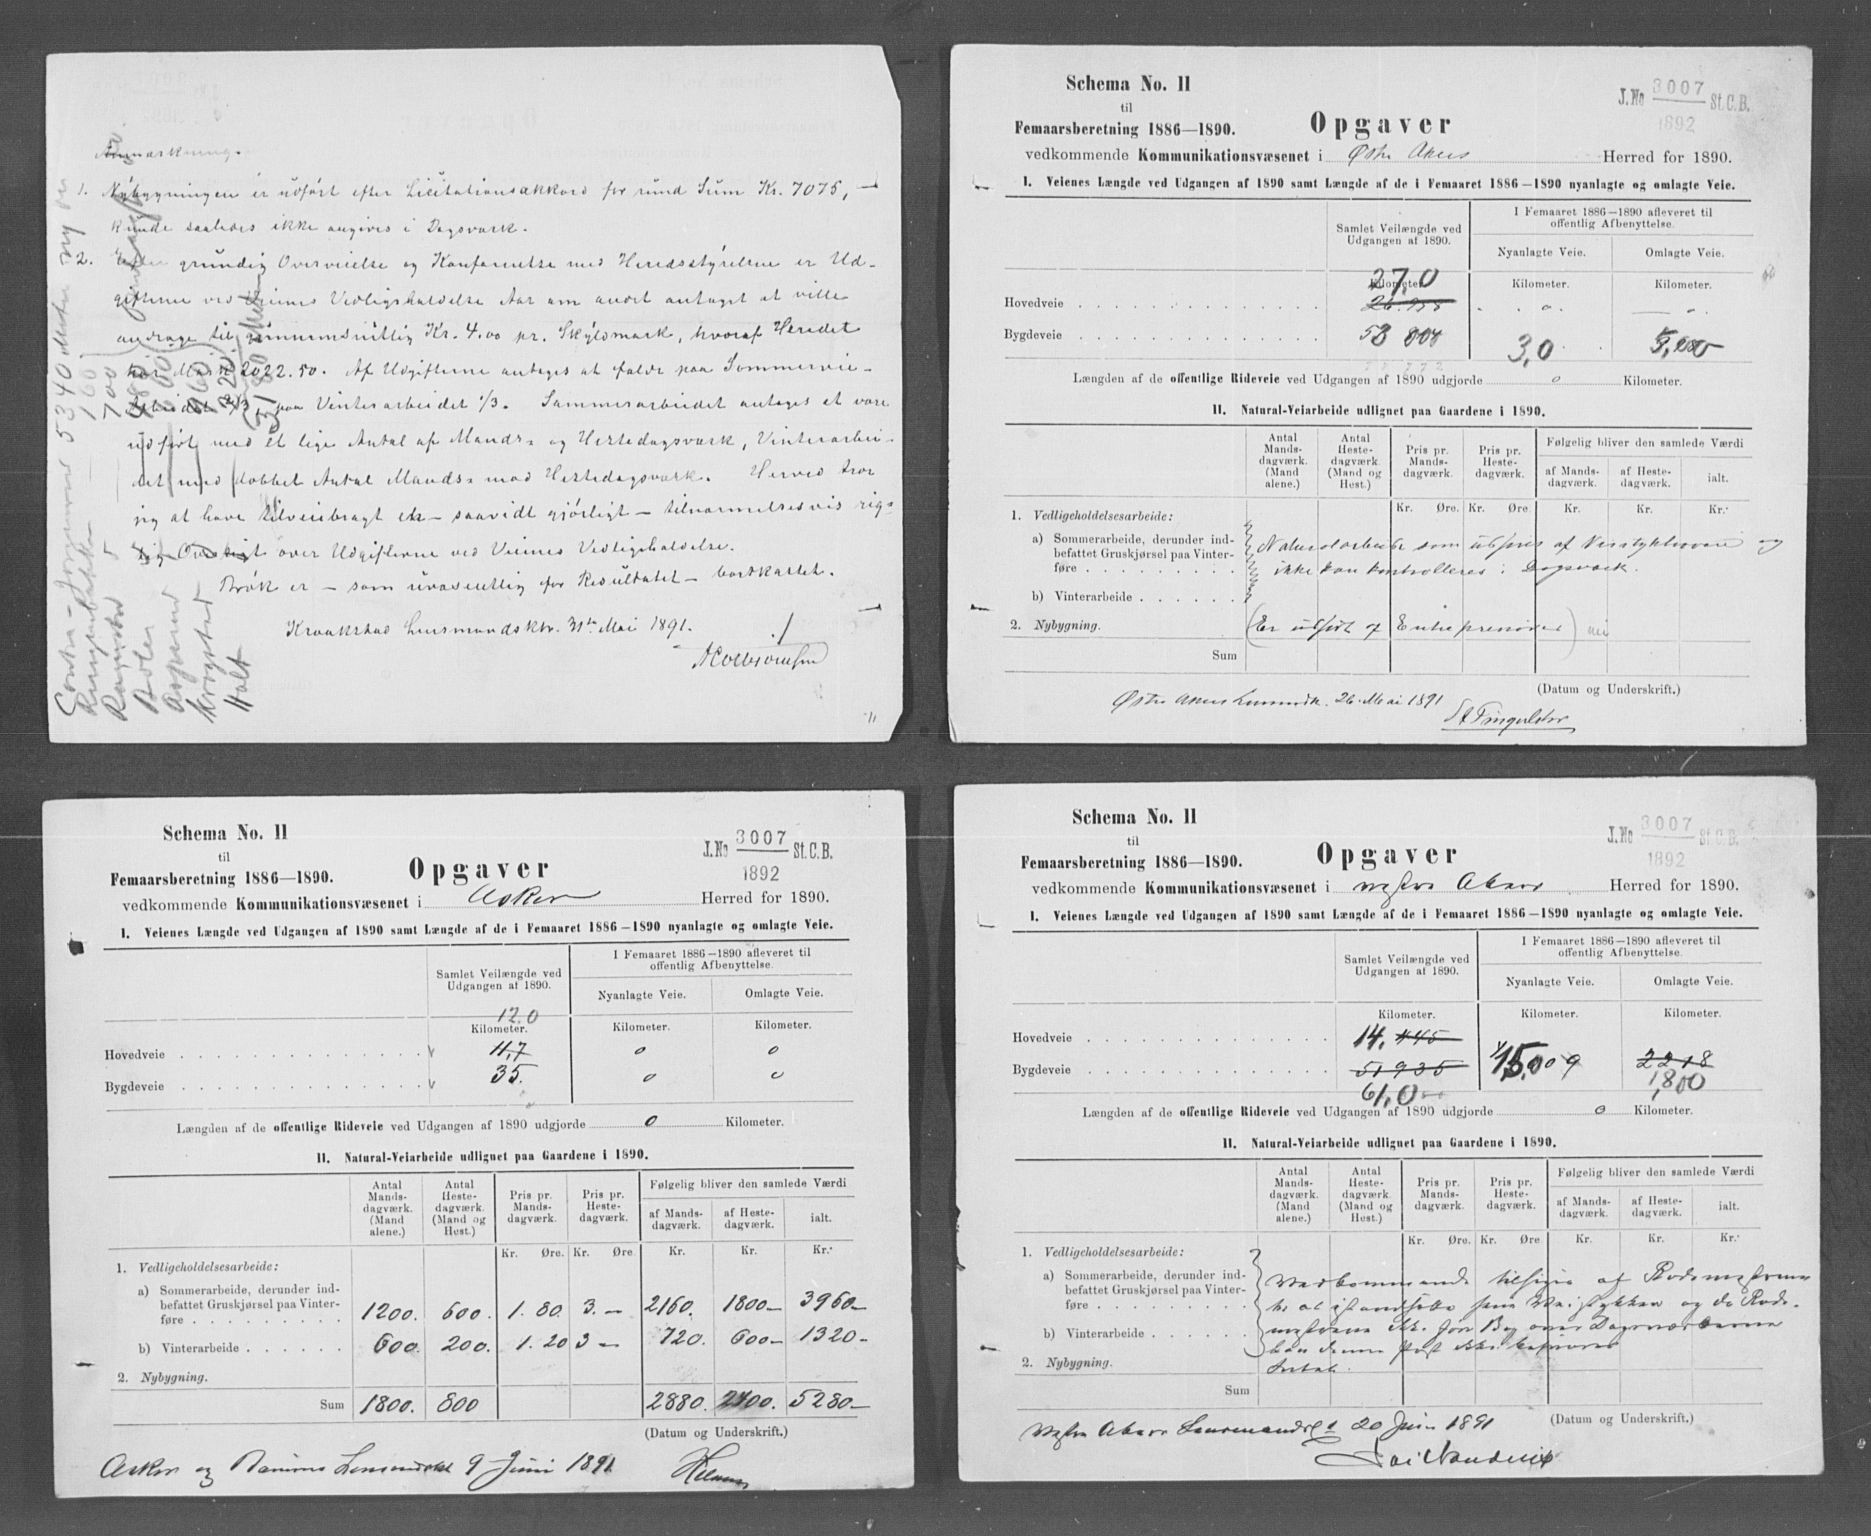 Anmærkning.
1. Nybygningen er udført efter Licitationsakkord for rund Sum Kr. 7075, —
kunde saaledes ikke angives i Dagsværk.
2. Efter grundig Overveielse og Konferentse med Heredsstyrelsen er Ud-
gifterne ved Veienes Vedligeholdelse Aar om andet antaget at ville
andrage til Kr. 4.00 pr. Skyldmark, hvoraf Heredet
har Mark 2022.50. Af Udgifterne antages at falde paa Sommervei-
arbeidet 2/3, paa Vinterarbeidet 1/3. Sommerarbeidet antages at være
udført med et lige Antal af Mands- og Hestedagsværk, Vinterarbei-
det med dobbel Antal Mands- mod Hestedagsværk. Herved tror
jeg at have tilveiebragt en — saavidt gjørligt — tilnærmelsesvis rig-
tig Oversigt over Udgifterne ved Veienes Vedligeholdelse.
Brøk er — som uvæsentlig for Resultatet — bortkastet.
Kraakstad Lensmandsktr. 31te Mai 1891.
5340 Meter ny vei
160
700
880
3180 Meter
Holt
Schema No. II
til
Femaarsberetning 1886—1890.
Opgaver
J.No 3007 St.C.B.
1892
vedkommende Kommunikationsvæsenet i Østre Akers Herred for 1890.
I. Veienes Længde ved Udgangen af 1890 samt Længde af de i Femaaret 1886—1890 nyanlagte og omlagte Veie.
Samlet Veilængde ved Udgangen af 1890.
I Femaaret 1886—1890 afleveret til offentlig Afbenyttelse.
Nyanlagte Veie. Omlagte Veie.
27,0
Kilometer. Kilometer. Kilometer.
Hovedveie
Bygdeveie 3,0
Længden af de offentlige Rideveie ved Udgangen af 1890 udgjorde 0 Kilometer.
II. Natural-Veiarbeide udlignet paa Gaardene i 1890.
Antal Mands-dagværk. (Mand alene.)
Antal Heste-dagværk. (Mand og Hest.)
Pris pr. Mands-dagværk.
Pris pr. Heste-dagværk.
Følgelig bliver den samlede Værdi
af Mands-dagværk. af Heste-dagværk. ialt.
Kr. Øre. Kr. Øre. Kr. Kr. Kr.
1. Vedligeholdelsesarbeide:
a) Sommerarbeide, derunder ind-
befattet Gruskjørsel paa Vinter-
føre
Naturalarbeide som udføres af Veistykkeeiere og
ikke kan kontrolleres i Dagsværk.
b) Vinterarbeide
2. Nybygning. (Er udført af Entreprenører)
Sum
(Datum og Underskrift.)
Østre Akers Lensmdk. 26 Mai 1891
Schema No. II
til
Femaarsberetning 1886—1890.
Opgaver
J.No 3007 St.C.B.
1892
vedkommende Kommunikationsvæsenet i Asker Herred for 1890.
I. Veienes Længde ved Udgangen af 1890 samt Længde af de i Femaaret 1886—1890 nyanlagte og omlagte Veie.
Samlet Veilængde ved Udgangen af 1890.
I Femaaret 1886—1890 afleveret til offentlig Afbenyttelse.
Nyanlagte Veie. Omlagte Veie.
12.0
Kilometer. Kilometer. Kilometer.
Hovedveie 11,7 0 0
Bygdeveie 35. 0 0
Længden af de offentlige Rideveie ved Udgangen af 1890 udgjorde 0 Kilometer.
II. Natural-Veiarbeide udlignet paa Gaardene i 1890.
Antal Mands-dagværk. (Mand alene.)
Antal Heste-dagværk. (Mand og Hest.)
Pris pr. Mands-dagværk.
Pris pr. Heste-dagværk.
Følgelig bliver den samlede Værdi
af Mands-dagværk. af Heste-dagværk. ialt.
Kr. Øre. Kr. Øre Kr. Kr. Kr.
1. Vedligeholdelsesarbeide:
a) Sommerarbeide, derunder ind-
befattet Gruskjørsel paa Vinter-
føre 1200. 600. 1. 80. 3. — 2160. 1800— 3960—
b) Vinterarbeide 600. 200. 1. 20 3 — 720. 600— 1320—
2. Nybygning.
Sum 1800. 800 2880. 2400. 5280—
(Datum og Underskrift.)
Asker og Bærums Lensmdktr 9 Juni 1891
Schema No. II
til
Femaarsberetning 1886—1890.
Opgaver
J.No 3007 St.C.B.
1892
vedkommende Kommunikationsvæsenet i Vestre Akers Herred for 1890.
I. Veienes Længde ved Udgangen af 1890 samt Længde af de i Femaaret 1886—1890 nyanlagte og omlagte Veie.
Samlet Veilængde ved Udgangen af 1890.
I Femaaret 1886—1890 afleveret til offentlig Afbenyttelse.
Nyanlagte Veie. Omlagte Veie.
Kilometer. Kilometer. Kilometer.
Hovedveie 14. 445
Bygdeveie 51935 2218
61,0 1,800
Længden af de offentlige Rideveie ved Udgangen af 1890 udgjorde 0 Kilometer.
II. Natural-Veiarbeide udlignet paa Gaardene i 1890.
Antal Mands-dagværk. (Mand alene.)
Antal Heste-dagværk. (Mand og Hest.)
Pris pr. Mands-dagværk.
Pris pr. Heste-dagværk.
Følgelig bliver den samlede Værdi
af Mands-dagværk. af Heste-dagværk. ialt.
Kr. Øre. Kr. Øre Kr. Kr. Kr.
1. Vedligeholdelsesarbeide:
a) Sommerarbeide, derunder ind-
befattet Gruskjørsel paa Vinter-
føre
Vedkommende tilsiges af Rodemestrene
til at istandsette sine Veistykker og da Rode-
mestrene ikke før Bog over Dagsværkerne
kan denne Post ikke besvares
b) Vinterarbeide
2. Nybygning. Intet.
Sum
(Datum og Underskrift.)
Vestre Akers Lensmandsk 20 Juni 1891